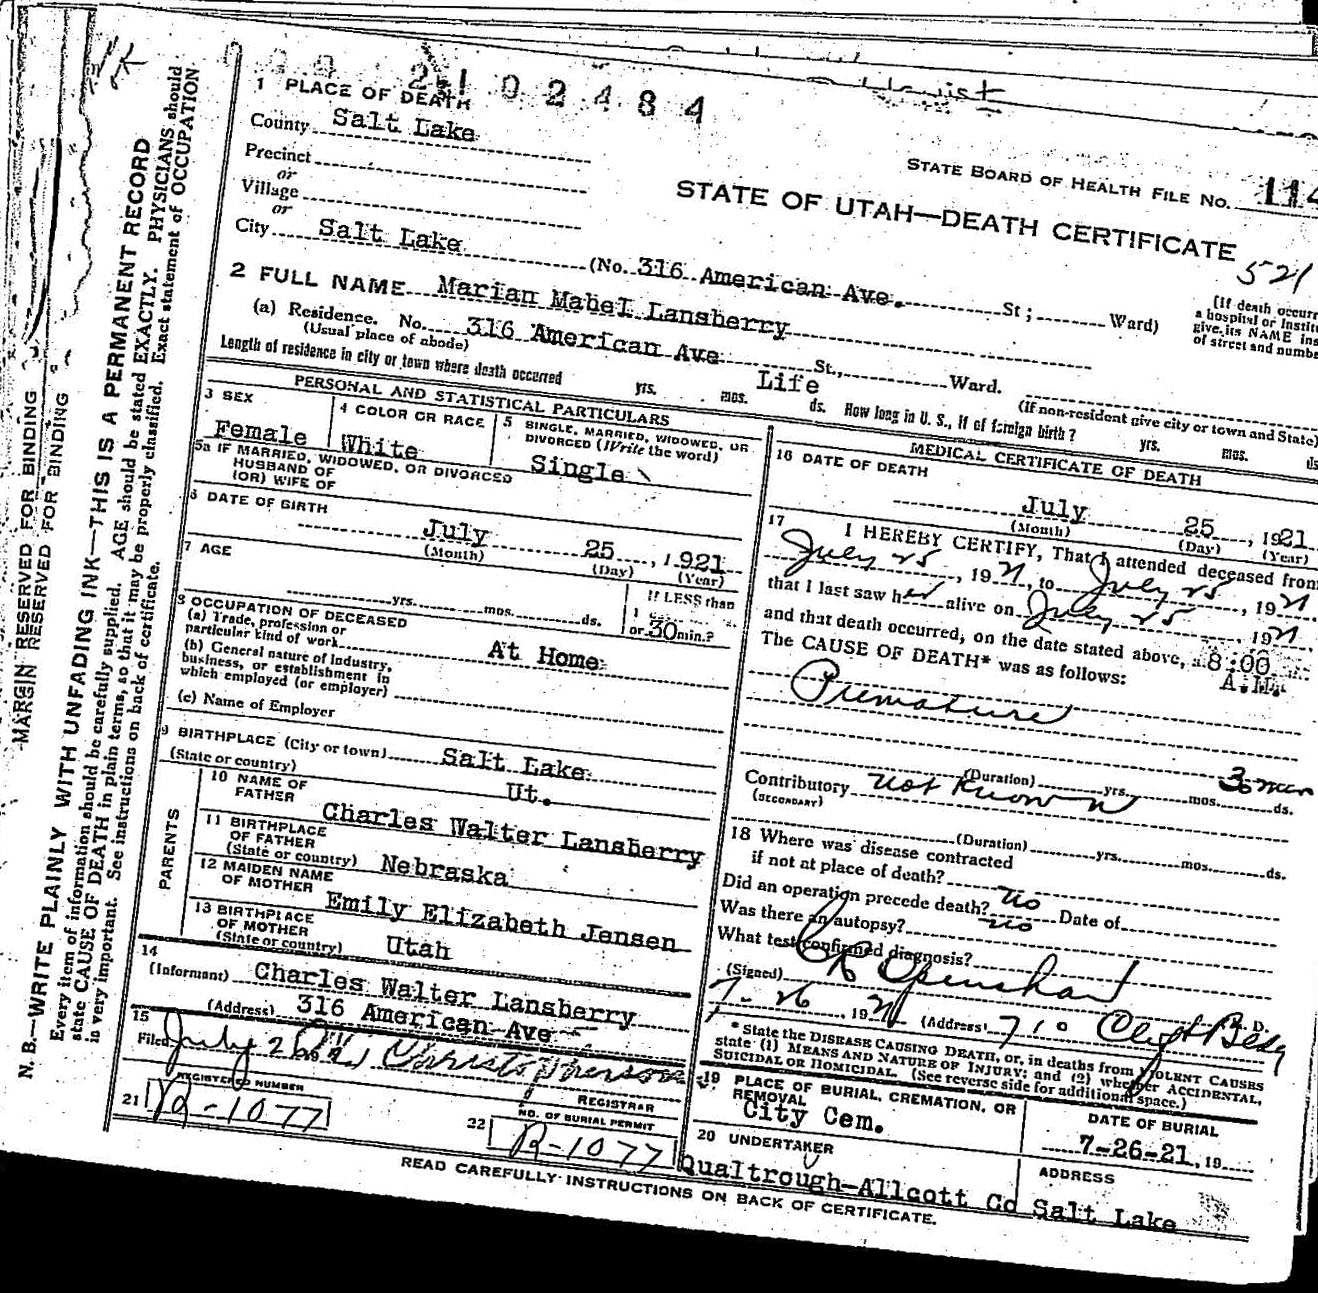 2102484
1 PLACE OF DEATH
County Salt Lake
STATE BOARD OF HEALTH FILE No. 114
Precinct
or
Village
or
STATE OF UTAH—DEATH CERTIFICATE
521
City Salt Lake (No. 316 American Ave. St; Ward)
(If death occurr
a hospital or Instit
give its NAME ins
of street and numbe
2 FULL NAME Marian Mabel Lansberry
(a) Residence. No. 316 American Ave St., Ward.
(Usual place of abode)
(If non-resident give city or town and State)
Length of residence in city or town where death occurred yrs. mos. Life ds. How long in U. S., if of foreign birth? yrs. mos. ds
PERSONAL AND STATISTICAL PARTICULARS
3 SEX
Female
4 COLOR OR RACE
White
5 SINGLE, MARRIED, WIDOWED, OR
DIVORCED (Write the word)
Single
5a IF MARRIED, WIDOWED, OR DIVORCED
HUSBAND OF
(OR) WIFE OF
6 DATE OF BIRTH
July 25, 1921
(Month) (Day) (Year)
7 AGE
yrs. mos. ds.
If LESS than
1
or 30 min.?
8 OCCUPATION OF DECEASED
(a) Trade, profession or
particular kind of work At Home
(b) General nature of industry,
business, or establishment in
which employed (or employer)
(c) Name of Employer
9 BIRTHPLACE (City or town) Salt Lake
(State or country) Ut.
PARENTS
10 NAME OF
FATHER Charles Walter Lansberry
11 BIRTHPLACE
OF FATHER
(State or country) Nebraska
12 MAIDEN NAME
OF MOTHER Emily Elizabeth Jensen
13 BIRTHPLACE
OF MOTHER
(State or country) Utah
14
(Informant) Charles Walter Lansberry
(Address) 316 American Ave
15
Filed July 26 Christopherson
REGISTRAR
REGISTERED NUMBER
21 R-1077
NO. OF BURIAL PERMIT
22 R-1077
MEDICAL CERTIFICATE OF DEATH
16 DATE OF DEATH
July 25, 1921
(Month) (Day) (Year)
17 I HEREBY CERTIFY, That I attended deceased from
July 25, 1921, to July 25, 1921
that I last saw her alive on July 25, 1921
and that death occurred, on the date stated above, a 8:00
A.M.
The CAUSE OF DEATH* was as follows:
Premature
(Duration) yrs. mos. ds.
Contributory not known
(SECONDARY)
(Duration) yrs. mos. ds.
18 Where was disease contracted
if not at place of death?
Did an operation precede death? no Date of
Was there an autopsy? no
What test confirmed diagnosis?
(Signed) Openshaw M. D.
7-26 1921 (Address) 710 Clift Bldg
* State the DISEASE CAUSING DEATH, or, in deaths from VIOLENT CAUSES
state (1) MEANS AND NATURE OF INJURY; and (2) whether ACCIDENTAL,
SUICIDAL OR HOMICIDAL. (See reverse side for additional space.)
19 PLACE OF BURIAL, CREMATION, OR
REMOVAL
City Cem.
DATE OF BURIAL
7-26-21, 19
20 UNDERTAKER
Qualtrough-Allcott Co
ADDRESS
Salt Lake
READ CAREFULLY INSTRUCTIONS ON BACK OF CERTIFICATE.
MARGIN RESERVED FOR BINDING
RESERVED FOR BINDING
N. B.—WRITE PLAINLY WITH UNFADING INK—THIS IS A PERMANENT RECORD
Every item of information should be carefully supplied. AGE should be stated EXACTLY. PHYSICIANS should
state CAUSE OF DEATH in plain terms, so that it may be properly classified. Exact statement of OCCUPATION
is very important. See instructions on back of certificate.